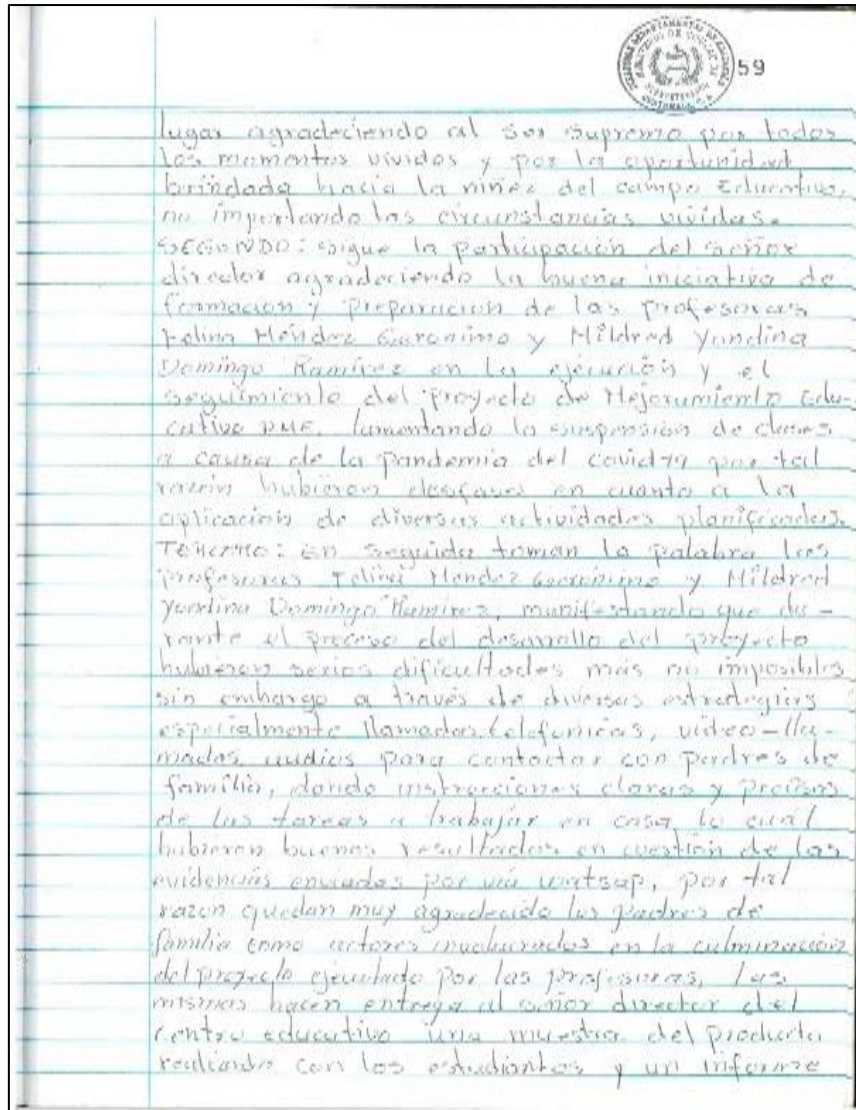 59
lugar agradeciendo al Ser Supremo por todos
los momentos vividos y por la oportunidad
brindada hacia la niñez del campo Educativo,
no importando las circunstancias vividas.
SEGUNDO: sigue la participación del señor
director agradeciendo la buena iniciativa de
formación y preparación de las profesoras
Felina Méndez Gerónimo y Mildred Yundina
Domingo Ramírez en la ejecución y el
seguimiento del Proyecto de Mejoramiento Edu-
cativo PME, lamentando la suspensión de clases
a causa de la pandemia del covid-19 por tal
razón hubieron desfases en cuanto a la
aplicación de diversas actividades planificadas.
TERCERO: En seguida toman la palabra las
profesoras Felina Méndez Gerónimo y Mildred
Yundina Domingo Ramírez, manifestando que du-
rante el proceso del desarrollo del proyecto
hubieron serias dificultades más no imposibles
sin embargo a través de diversas estrategias
especialmente llamadas telefónicas, video-lla-
madas, audios para contactar con padres de
familia, dando instrucciones claras y precisas
de las tareas a trabajar en casa lo cuál
hubieron buenos resultados en cuestión de las
evidencias enviadas por vía watsap, por tal
razón quedan muy agradecido los padres de
familia como actores involucrados en la culminación
del proyecto ejecutado por las profesoras, las
mismas hacen entrega al señor director del
centro educativo una muestra del producto
realizando con los estudiantes y un informe